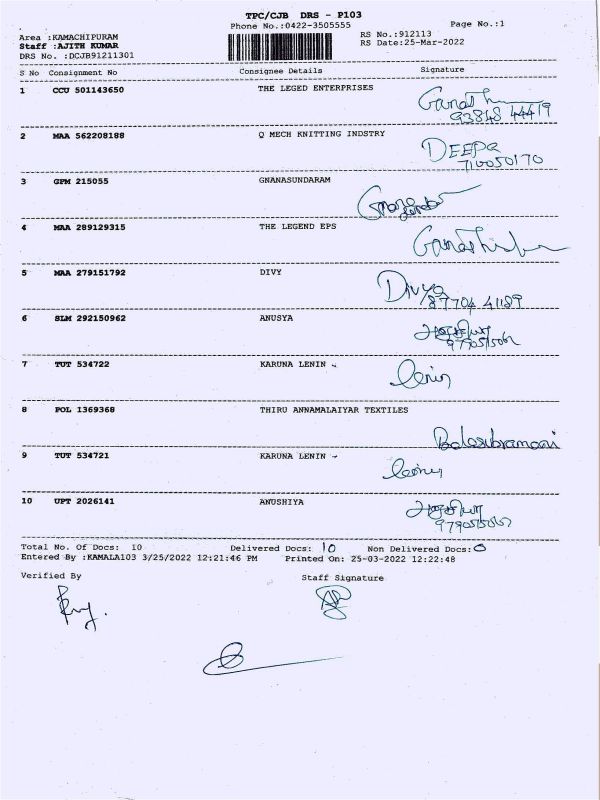 TPC/CJB DRS - P103
Phone No.:0422-3505555
Page No.:1
Area :KAMACHIPURAM
RS No.:912113
Staff :AJITH KUMAR
RS Date:25-Mar-2022
DRS No. :DCJB91211301
S No Consignment No Consignee Details Signature
1 CCU 501143650 THE LEGED ENTERPRISES
93848 44419
2 MAA 562208188 Q MECH KNITTING INDSTRY
DEEPA
710050170
3 GPM 215055 GNANASUNDARAM
4 MAA 289129315 THE LEGEND EPS
5 MAA 279151792 DIVY
Divya
87704 41189
6 SLM 292150962 ANUSYA
7 TUT 534722 KARUNA LENIN
lenin
8 POL 1369368 THIRU ANNAMALAIYAR TEXTILES
Balasubramani
9 TUT 534721 KARUNA LENIN
lenin
10 UPT 2026141 ANUSHIYA
Total No. Of Docs: 10 Delivered Docs: 10 Non Delivered Docs: 0
Entered By :KAMALA103 3/25/2022 12:21:46 PM Printed On: 25-03-2022 12:22:48
Verified By Staff Signature